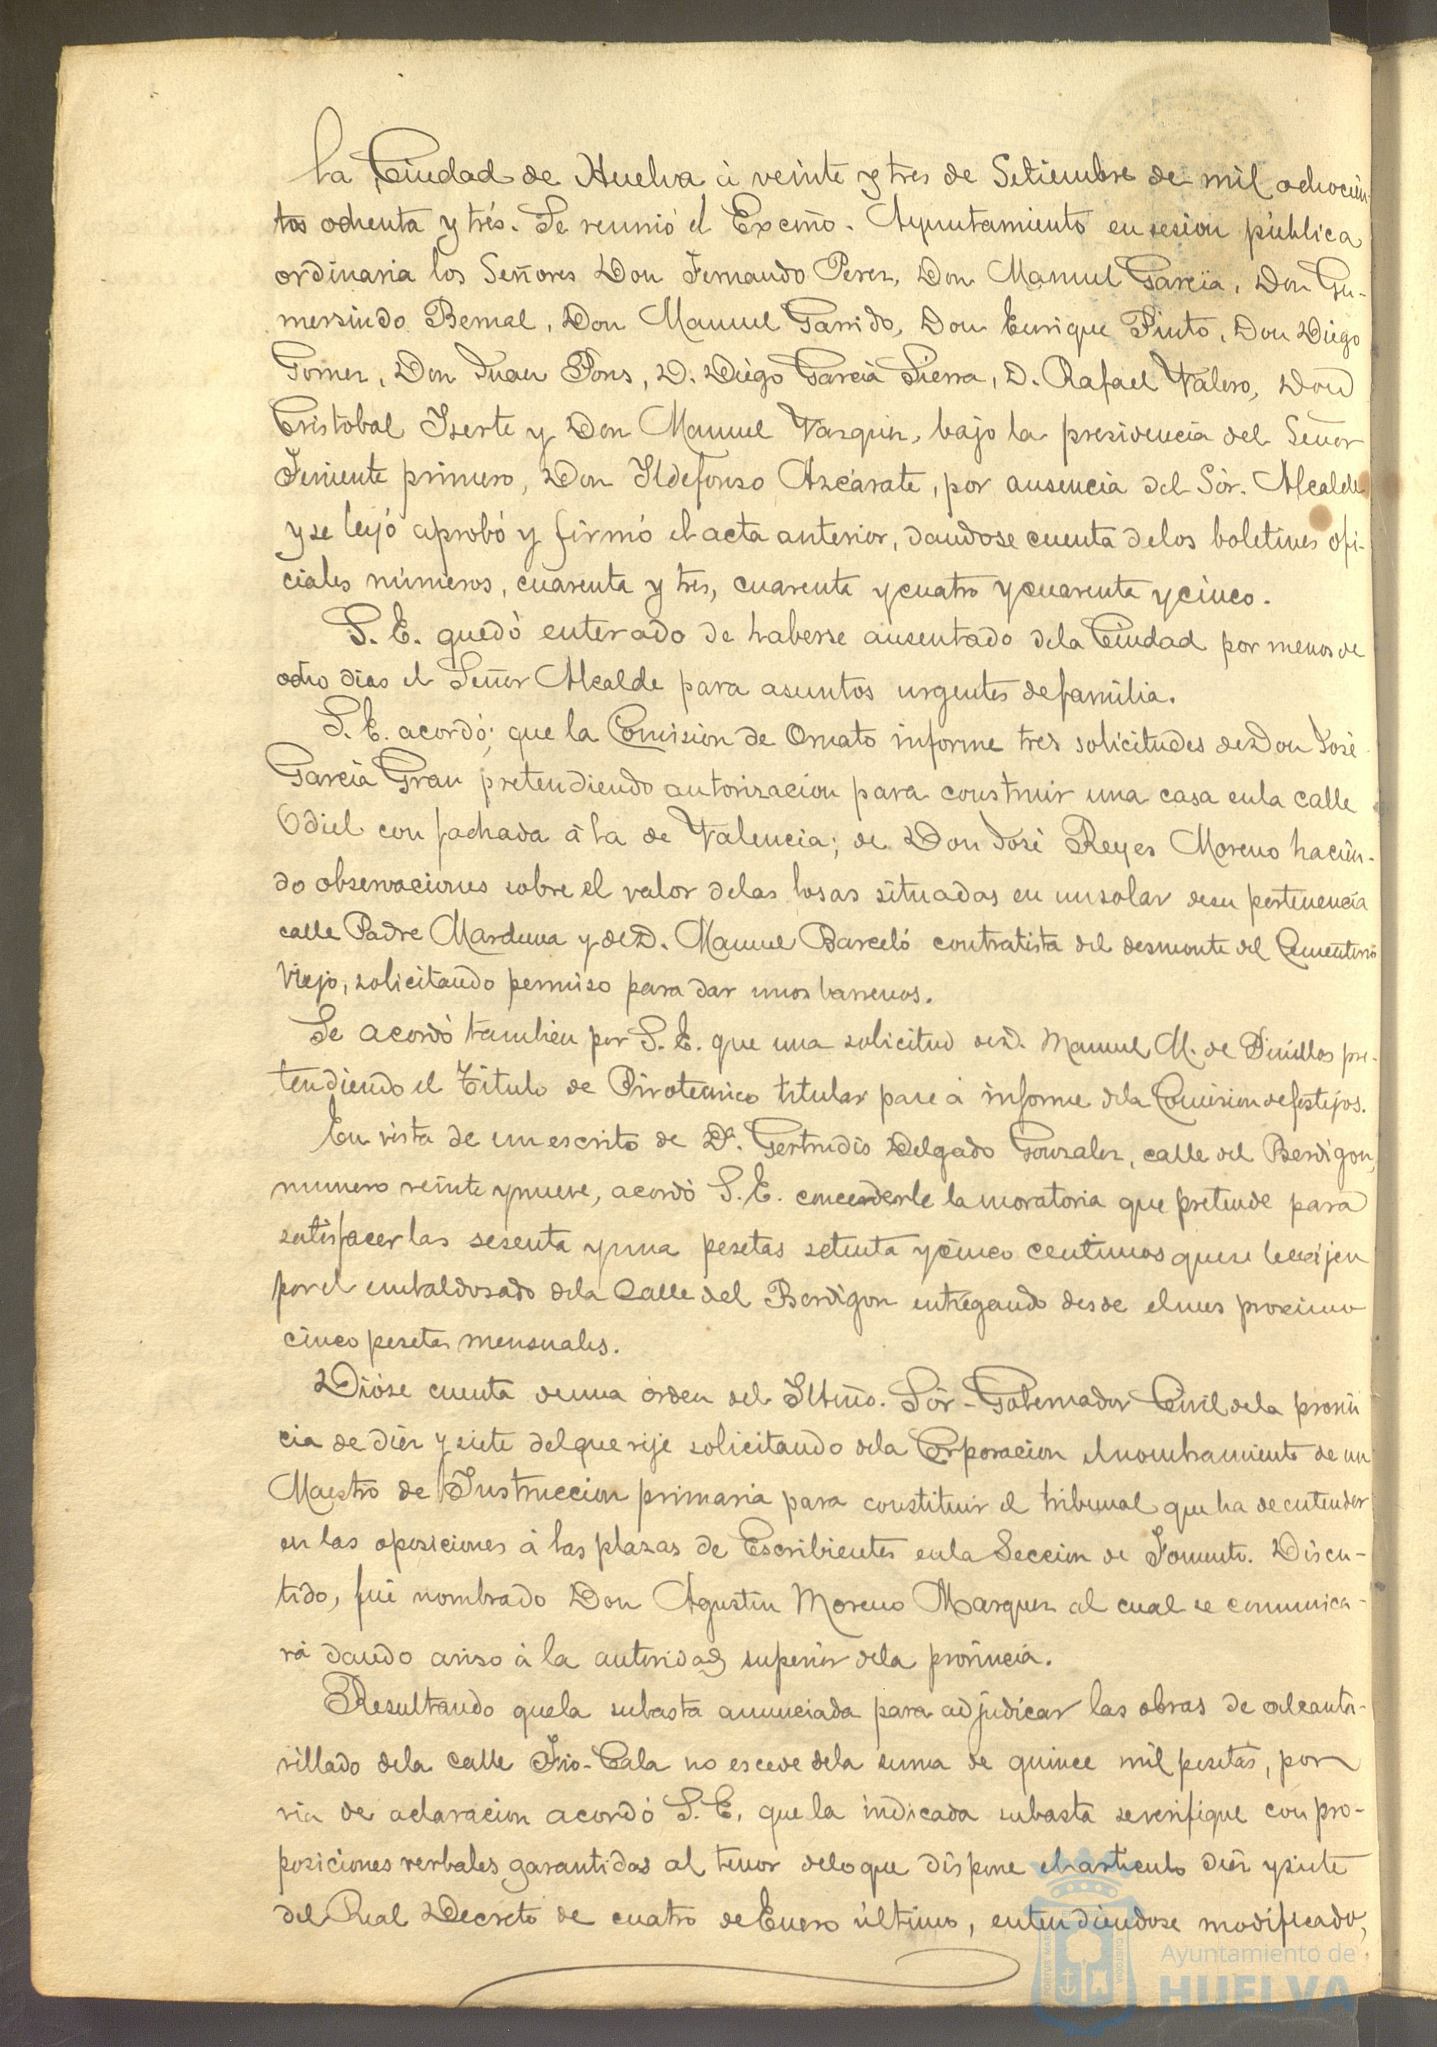 La Ciudad de Huelva á veinte y tres de Setiembre de mil ochocien-
tos ochenta y trés. Se reunió el Excmo. Ayuntamiento en sesion pública
ordinaria los Señores Don Fernando Perez, Don Manuel Garcia, Don Gu-
mersindo Bernal, Don Manuel Garrido, Don Enrique Pinto, Don Diego
Gomez, Don Juan Pons, D. Diego Garcia Sierra, D. Rafael Valero, Don
Cristobal Iserte y Don Manuel Vazquez, bajo la presidencia del Señor
Teniente primero, Don Ildefonso Azcárate, por ausencia del Sór. Alcalde
y se leyó aprobó y firmó el acta anterior, dandose cuenta de los boletines ofi-
ciales números, cuarenta y tres, cuarenta y cuatro y cuarenta y cinco.
S. E. quedó enterado de haberse ausentado de la Ciudad por menos de
ocho dias el Señor Alcalde para asuntos urgentes de familia.
S. E. acordó; que la Comision de Ornato informe tres solicitudes de Don José
Garcia Grau pretendiendo autorizacion para construir una casa en la calle
Odiel con fachada á la de Valencia; de Don José Reyes Moreno hacien-
do observaciones sobre el valor de las losas situadas en un solar de su pertenencia
calle Padre Marchena y de D. Manuel Barceló contratista del desmonte del Cementerio
Viejo, solicitando permiso para dar unos barrenos.
Se acordó tambien por S. E. que una solicitud de D. Manuel M. de Pinillos pre-
tendiendo el Título de Pirotecnico titular pase á informe de la Comision de festejos.
En vista de un escrito de Dª. Gertrudis Delgado Gonzalez, calle del Berdigon,
numero veinte y nueve, acordó S. E. concederle la moratoria que pretende para
satisfacer las sesenta y una pesetas setenta y cinco centimos que se le exijen
por el embaldosado de la Calle del Berdigon entregando desde el mes proximo
cinco pesetas mensuales.
Dióse cuenta de una órden del Iltmo. Sór. Gobernador Civil de la provin
cia de diez y siete del que rije solicitando de la Corporacion el nombramiento de un
Maestro de Instruccion primaria para constituir el tribunal que ha de entender
en las oposiciones á las plazas de Escribientes en la Seccion de Fomento. Discu-
tido, fué nombrado Don Agustin Moreno Marquez al cual se comunica-
rá dando aviso á la autoridad superior de la provincia.
Resultando que la subasta anunciada para adjudicar las obras de alcanta-
rillado de la calle Trio-Cala no escede de la suma de quince mil pesetas, por
via de aclaracion acordó S. E. que la indicada subasta se verifique con pro-
posiciones verbales garantidas al tenor de lo que dispone el articulo diez y siete
del Real Decreto de cuatro de Enero último, entendiendose modificado,
Ayuntamiento de
HUELVA